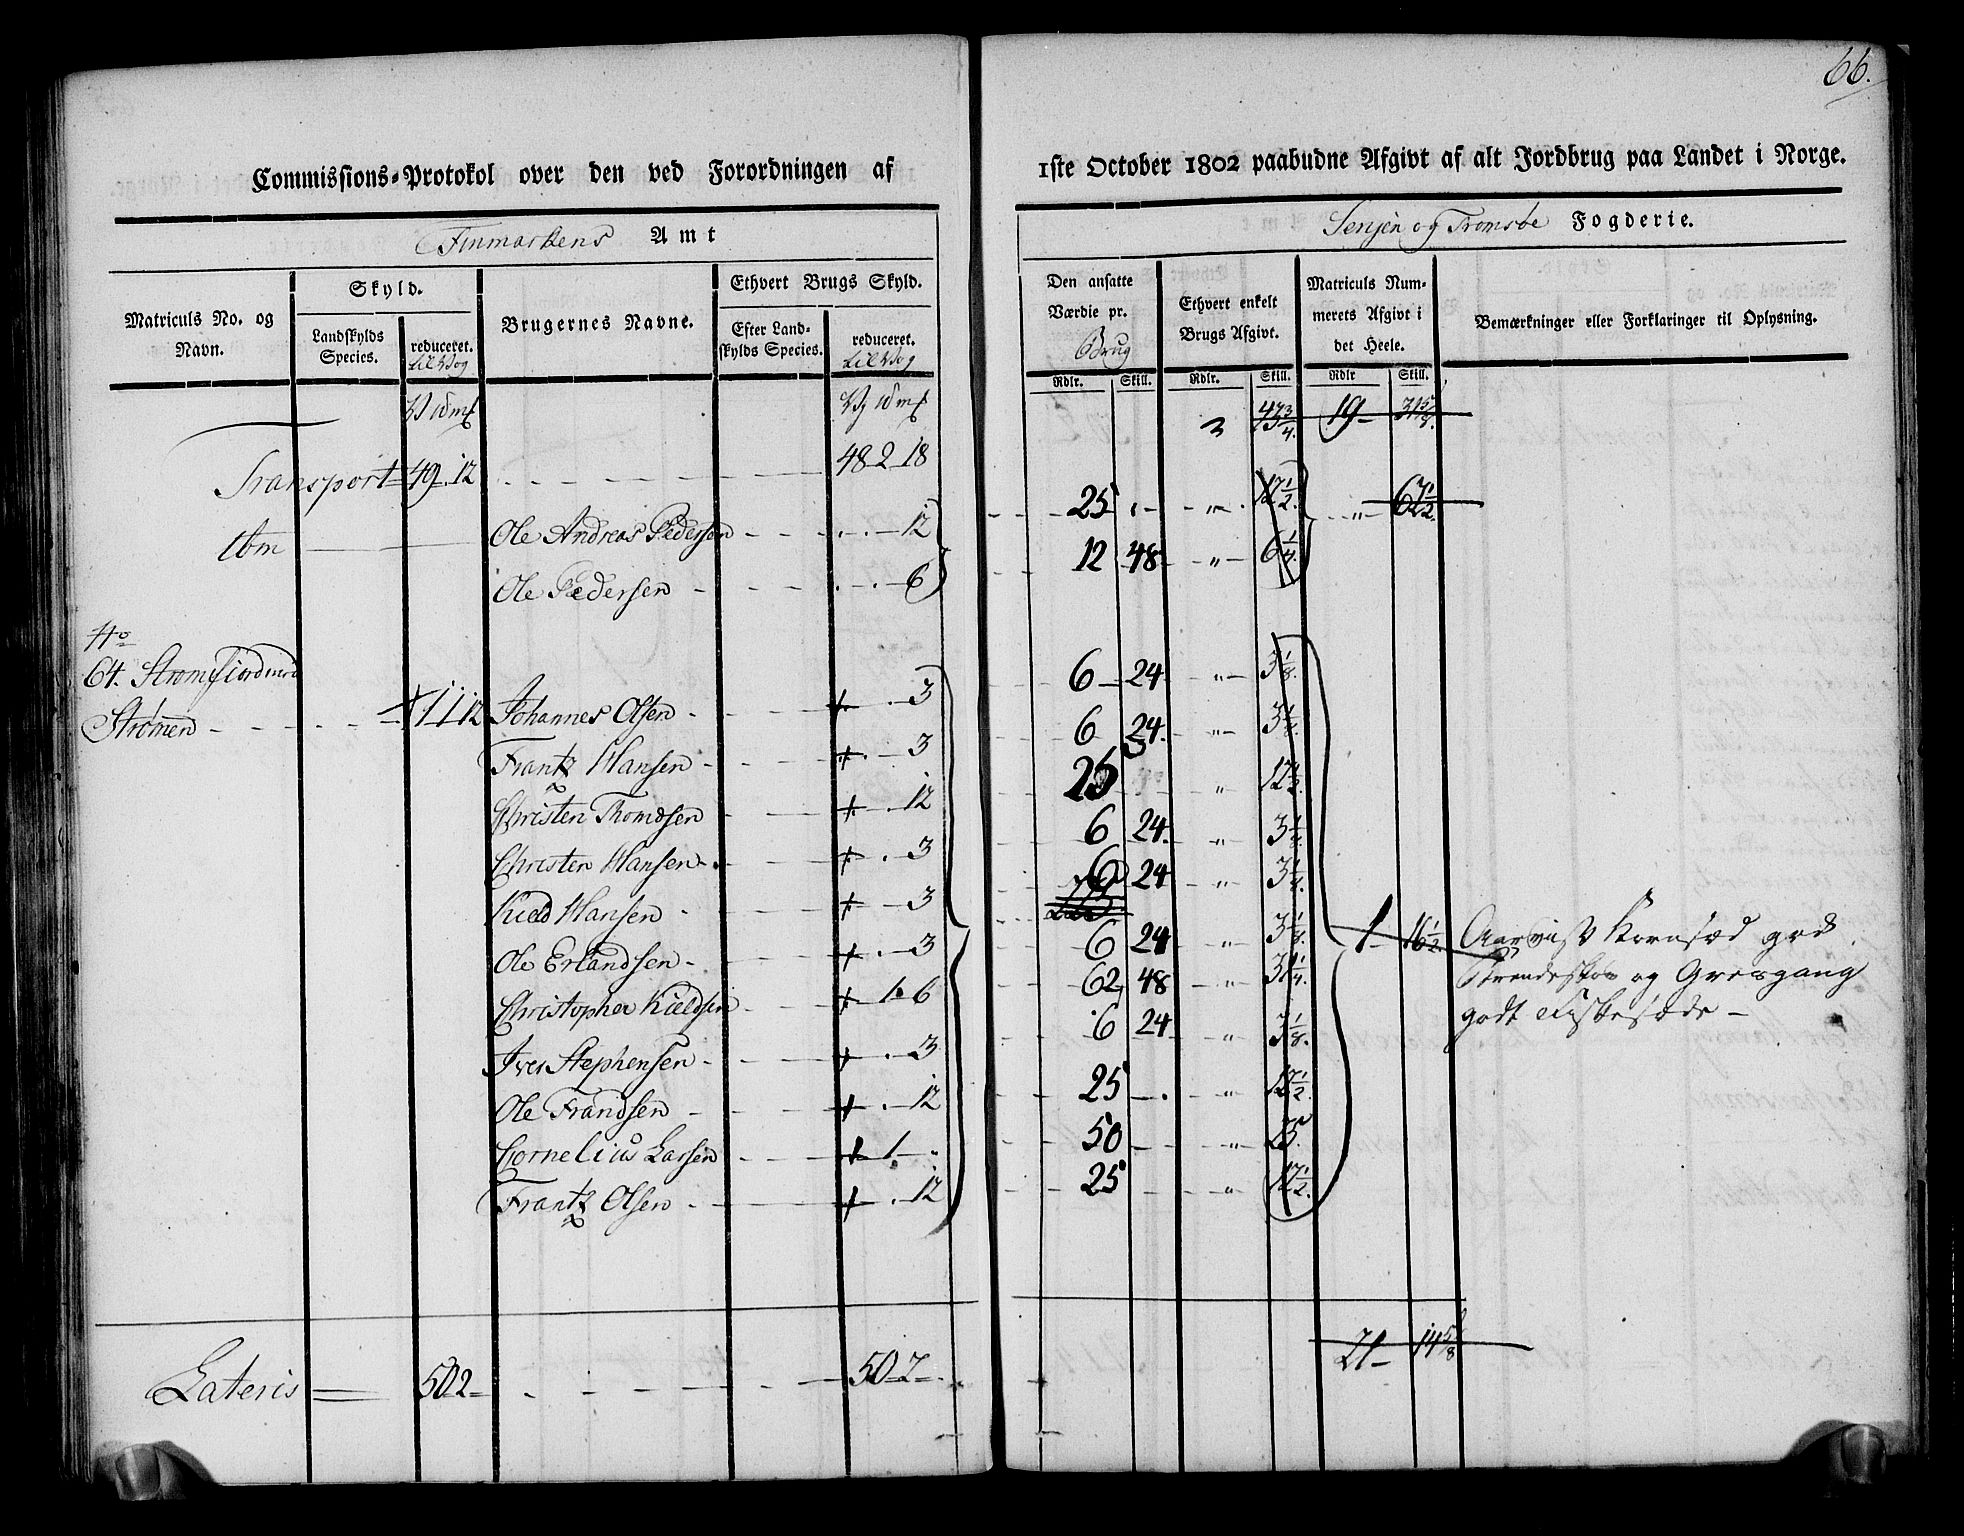 66.
Commissions-Protokol over den ved Forordningen af
1ste October 1802 paabudne Afgivt af alt Jordbrug paa Landet i Norge.
Finmarkens Amt
Senjen og Tromsøe Fogderie.
Matriculs No. og Navn.
Skyld.
Landskylds Species.
reduceret.
Brugernes Navne.
Ethvert Brugs Skyld.
Efter Landskylds Species.
reduceret.
Den ansatte Værdie pr. Brug
Ethvert enkelt Brugs Afgivt.
Matriculs Nummerets Afgivt i det Heele.
Bemærkninger eller Forklaringer til Oplysning.
Rdlr. Skill. Rdlr. Skill. Rdlr Skill.
3 47 3/4. 19 - 31 5/8.
Transport 49 . 12 48 - 2 - 18
Ole Andreas Pedersen . . 12 25 . " . 12 1/2. " 67 1/2.
Ole Pedersen . . 6 12 48 " 6 1/4.
No
64. Strømfiord
Strømen + 1 1 12 Johannes Olsen + . 3 6 24 " 3 1/8.
Frantz Hansen + . 3 6 24. " 3 1/8.
Christen Thomdsen + . 12 25 " 12 1/2.
Christen Hansen + . 3 6 24. " 3 1/8.
Kield Hansen + . 3 6 24 " 3 1/8.
Ole Erlandsen + . 3 6 24 " 3 1/8. 1 - 16 1/2. Korensæd god
Christopher Kieldsen + 1 . 6 62 48 " 31 1/4. og Græsgang
Iver Stephensen + . 3 6 24 " 3 1/8. godt Fiskesøde -
Ole Frandsen + . 12 25 - . " 12 1/2.
Cornelius Larsen + 1 - . 50 - " 25.
Frantz Olsen + . 12 25 " 12 1/2.
Lateris 50 2 50 - 2 - . 21 - 14 5/8